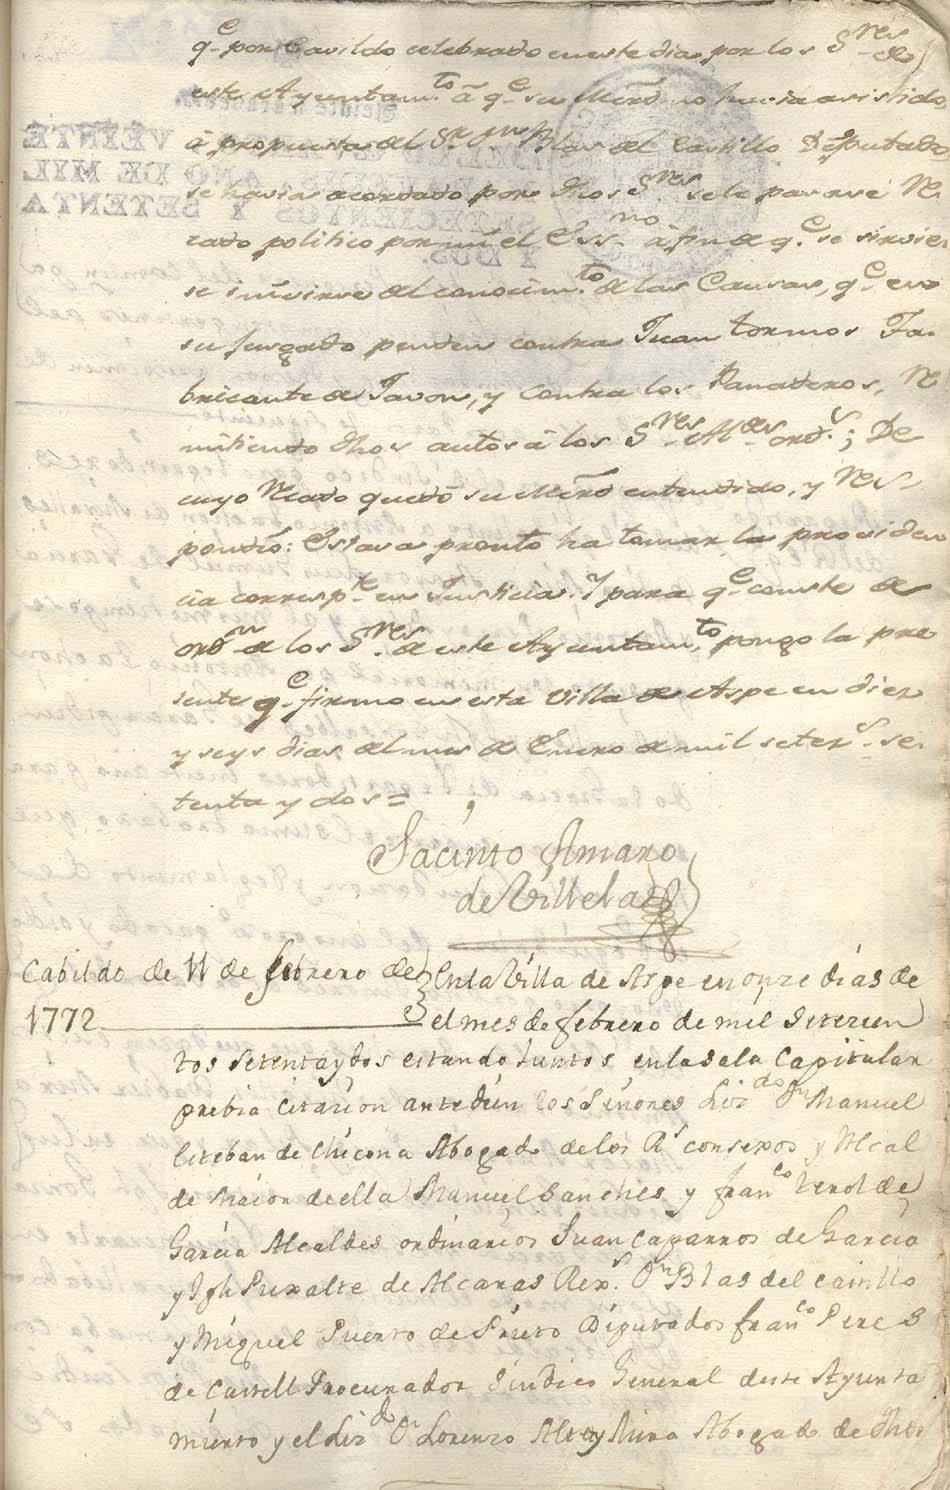 q.e por Cavildo celebrado en este dia por los S.res de
este Ayuntam.to á q.e su Merd no havia asistido
á propuesta del S.r D.n Blas del Castillo Diputado
se havia acordado por dhos S.res se le pasase Re
cado politico por mi el Ess.no á fin de q.e se sirvie
se del conocim.to de las Causas, q.e en
su Juzgado penden contra Juan tormos Fa
bricante de Javon, y contra los Panaderos, Re
mitiendo dhos autos á los S.res Al.des ord.s; De
cuyo Recado quedó su Merd entendido, y Res
pondió: Estava pronto ha tomar la providen
cia corresp.te en Justicia. Y para q.e conste de
ord.n de los S.res de este Ayuntam.to, pongo la pre
sente q.e firmo en esta Villa de Aspe en diez
y seys dias del mes de Enero de mil setez.s se
tenta y dos =
Jacinto Amaro
de Villela
Cabildo de 11 de febrero de
1772
En la Villa de Aspe en onze días de
el mes de febrero de mil Setecien
tos Setenta y dos estando Juntos en la sala Capitular
prebia Citacion antedien los Señores Liz.do D.n Manuel
Esteban de Chicona Abogado de los R.s consexos y Alcal
de Maior de ella Manuel Sanches y fran.co terol de
Garcia Alcaldes ordinarios Juan Caparros de Garcia
y Jph Puxalte de Alcaras Rex.s D.n Blas del Castillo
y Miguel Puerto de Prieto Diputados fran.co Peres
de Castell Procurador Sindico General deste Ayunta
miento y el Liz.do D.n Lorenzo Abogado de dhos